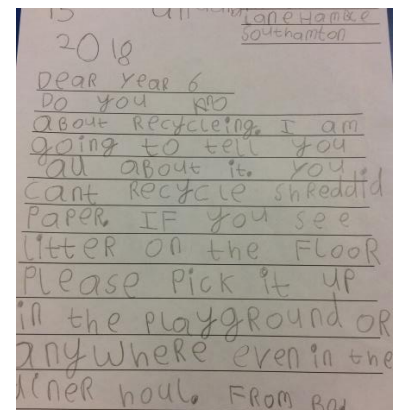 Lane Hamble
Southampton
2018
Dear Year 6
Do you kno
about Recycleing. I am
going to tell you
all about it. you
cant Recycle shreddid
Paper. IF you see
litter on the Floor
Please Pick it up
in the playground OR
anywhere even in the
diner houl. From